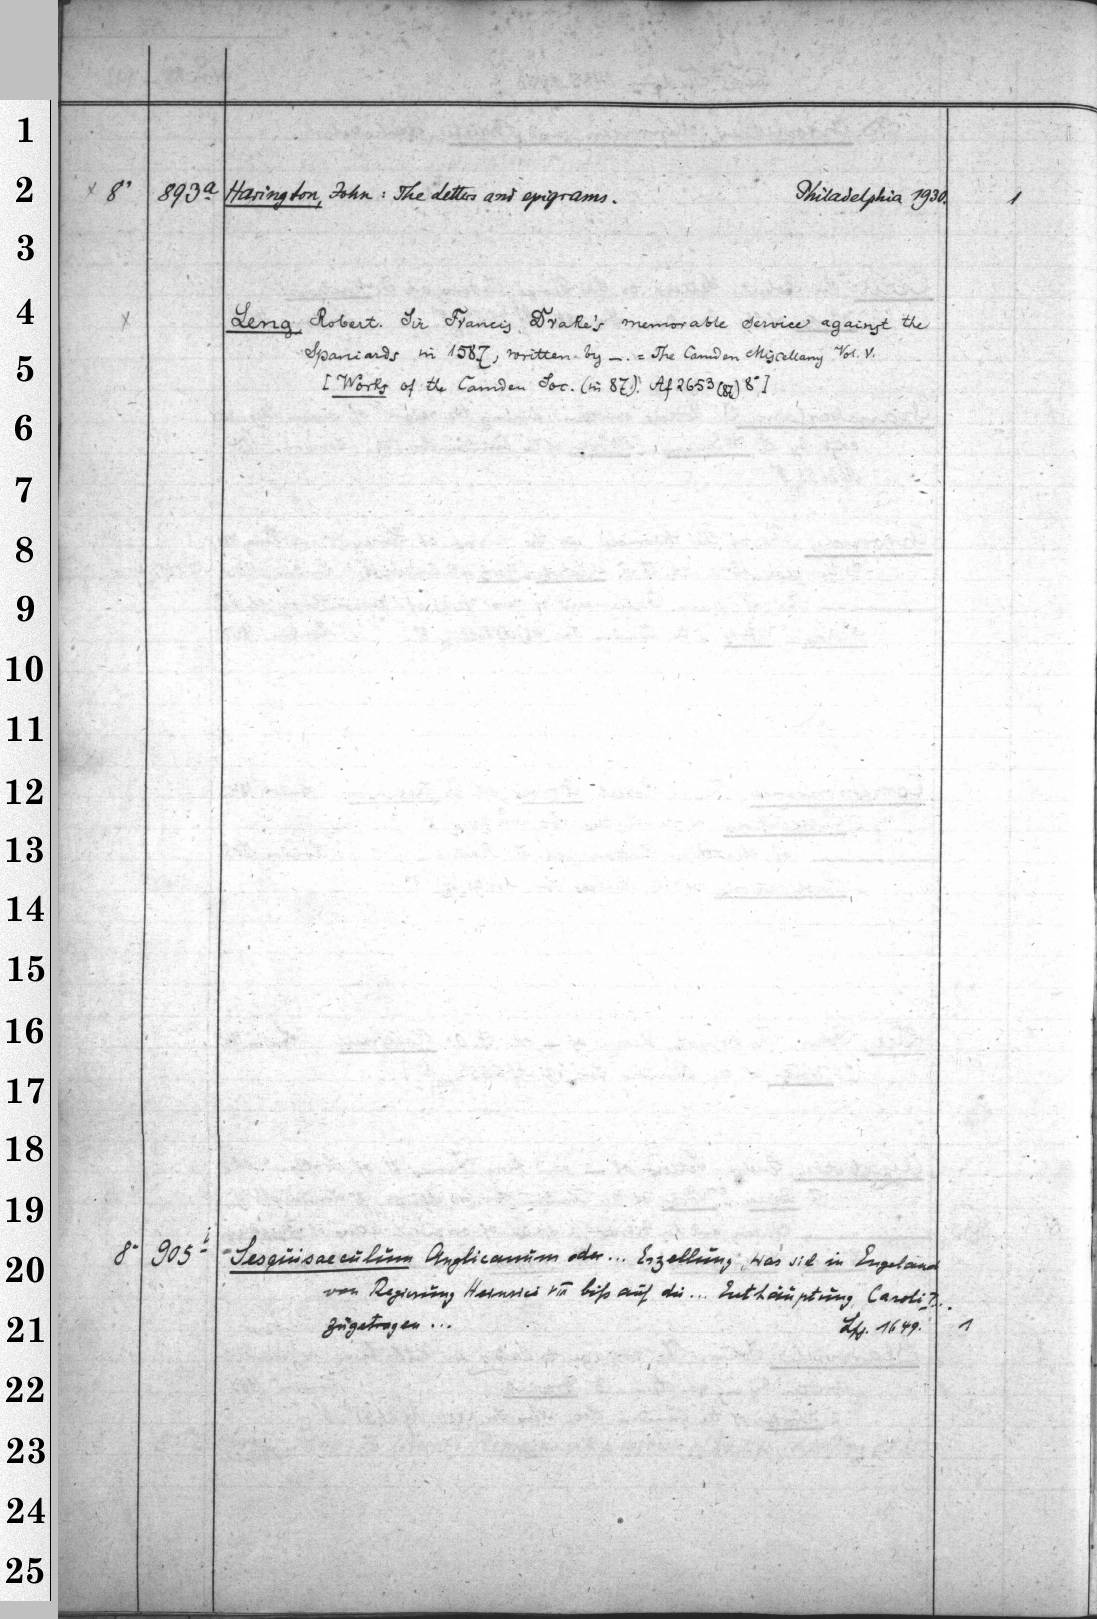 1
2
3
4
5
6
7
8
9
10
11
12
13
14
15
16
17
18
19
20
21
22
23
24
25
x 8° 893a Harington, John: The letters and epigrams. Philadelphia 1930. 1
x Leng, Robert. Sir Francis Drake's memorable service against the
Spaniards in 1587, written by —. = The Camden Miscellany Vol. V.
[Works of the Camden Soc. (in 87): Af 2653 (87) 8°]
8° 905i Sesquisaeculum Anglicanum oder... Erzellung, was sich in Engeland
von Regierung Heinrici VIII biß auf die ... Enthäuptung Caroli I...
zugetragen ... Lpz. 1649. 1